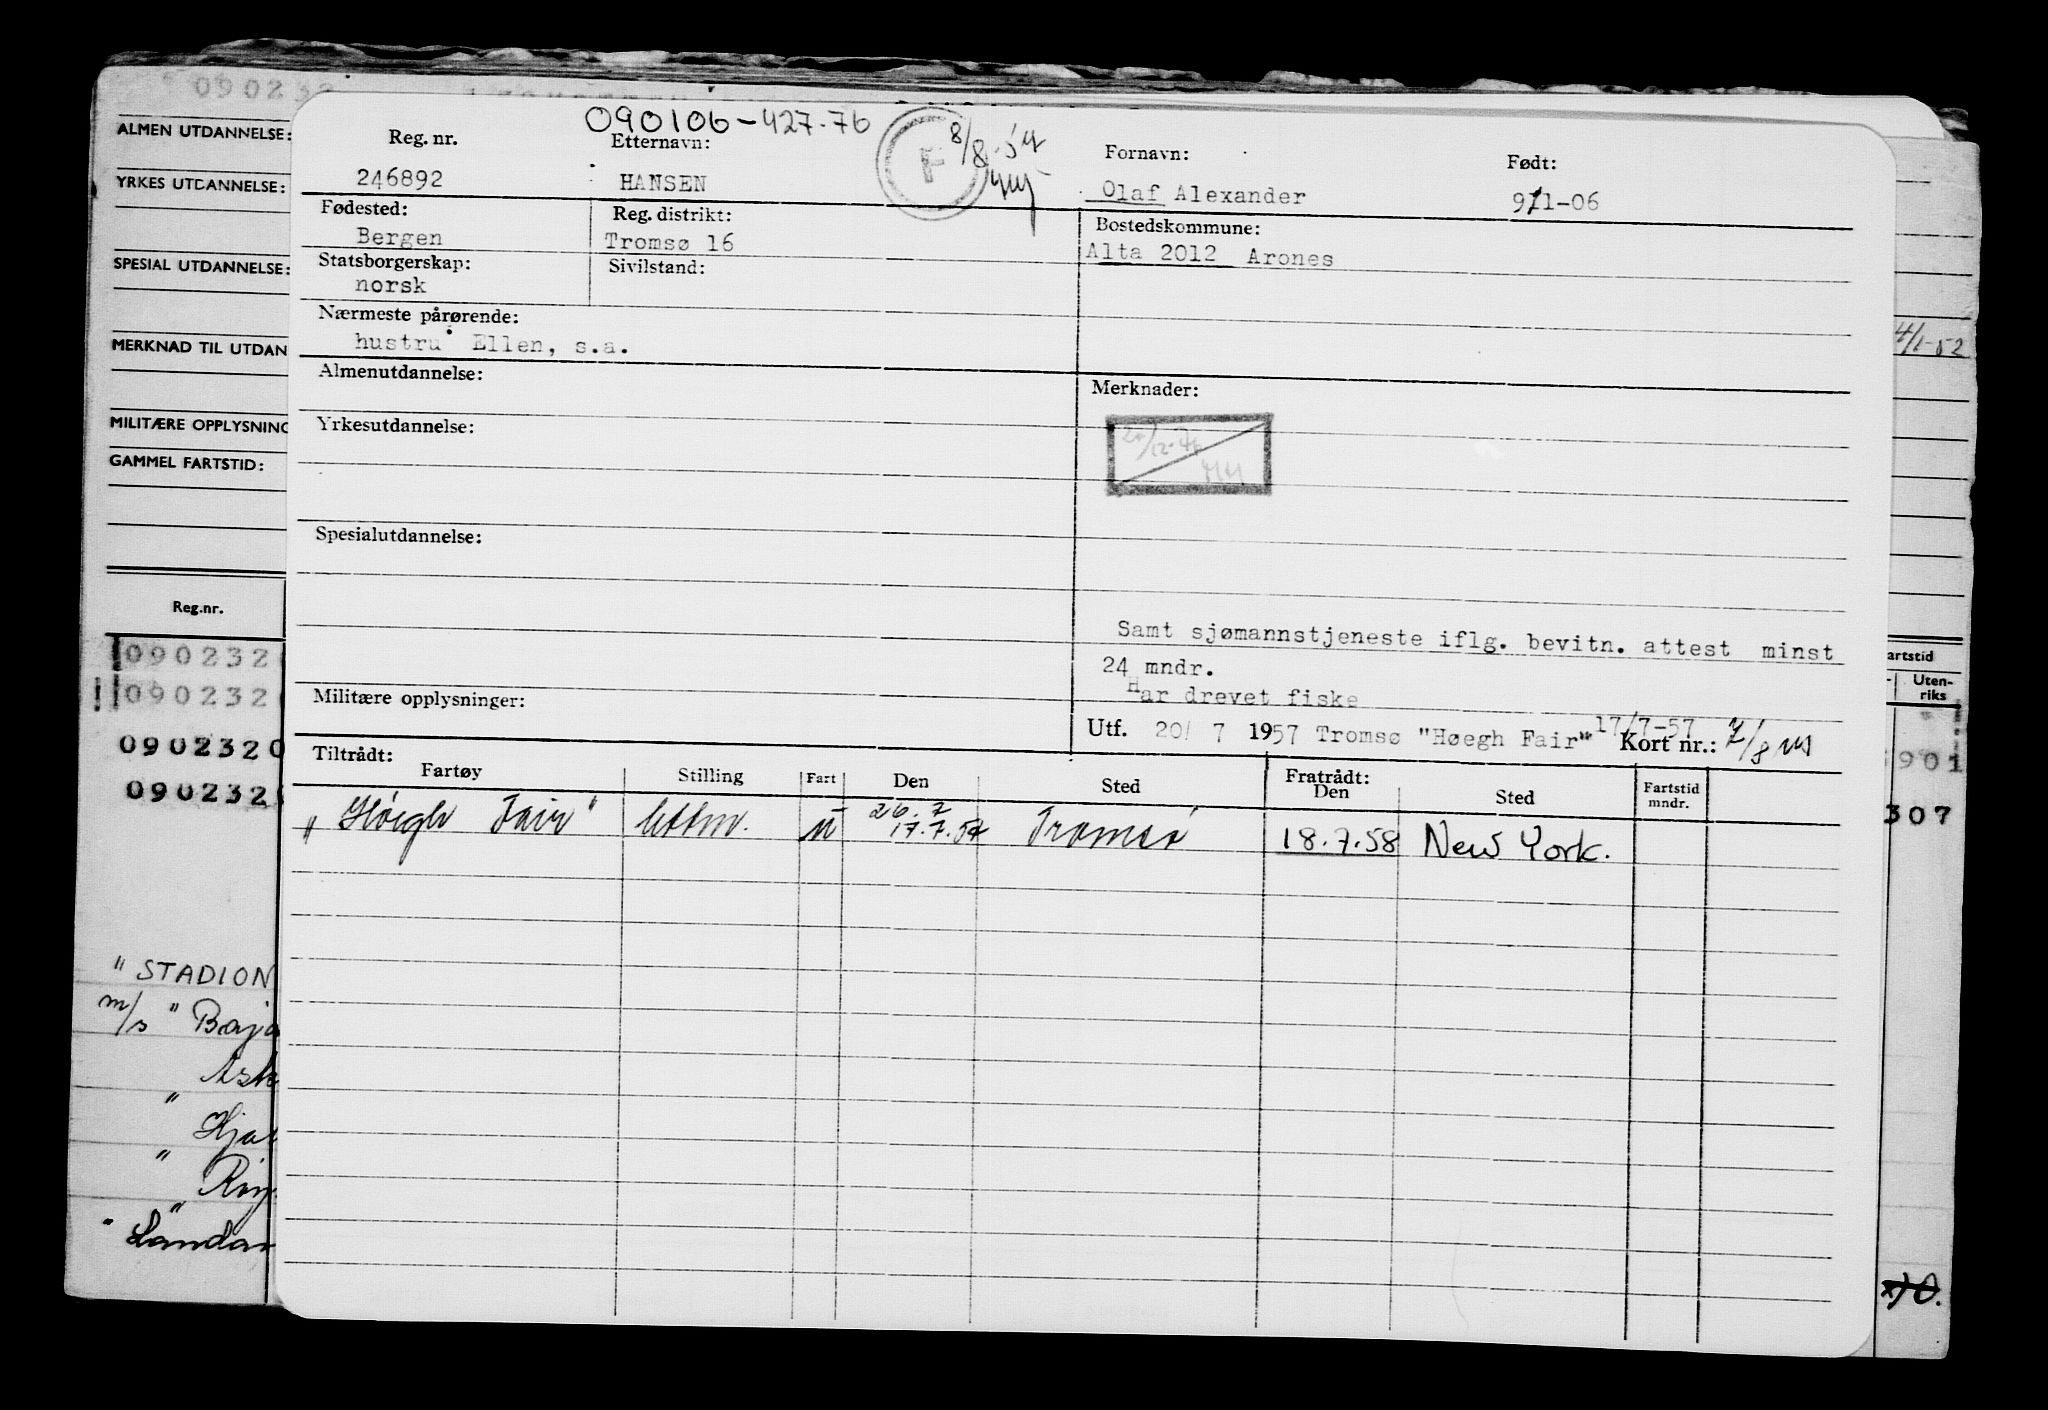 090232
ALMEN UTDANNELSE:
YRKES UTDANNELSE:
SPESIAL UTDANNELSE:
MERKNAD TIL UTDAN
MILITÆRE OPPLYSNING
GAMMEL FARTSTID:
Reg.nr.
090232
090232
0902320
090232
"STADION
m/s "Baja
Ask
" Hjal
" Ring
" Landan
090106-427.76
8/8-57
F
Reg. nr. Etternavn: Fornavn: Født:
246892 HANSEN Olaf Alexander 9/1-06
Fødested: Reg. distrikt: Bostedskommune:
Bergen Tromsø 16 Alta 2012 Arones
Statsborgerskap: Sivilstand:
norsk
Nærmeste pårørende:
hustru Ellen, s.a.
Almenutdannelse: Merknader:
Yrkesutdannelse:
Spesialutdannelse:
Samt sjømannstjeneste iflg. bevitn. attest minst
24 mndr.
Har drevet fiske
Militære opplysninger:
Utf. 20/ 7 1957 Tromsø "Høegh Fair" 17/7-57 Kort nr.:
Tiltrådt: Fratrådt:
Fartøy Stilling Fart Den Sted Den Sted Fartstid mndr.
26.7
"Høegh Fair" lettm. u 17.7.57 Tromsø 18.7.58 New York.
4/1-52
artstid
Uten-
riks
901
307